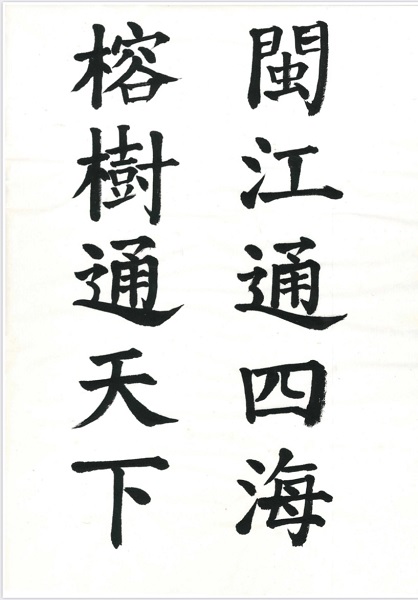 閩江通四海
榕樹通天下